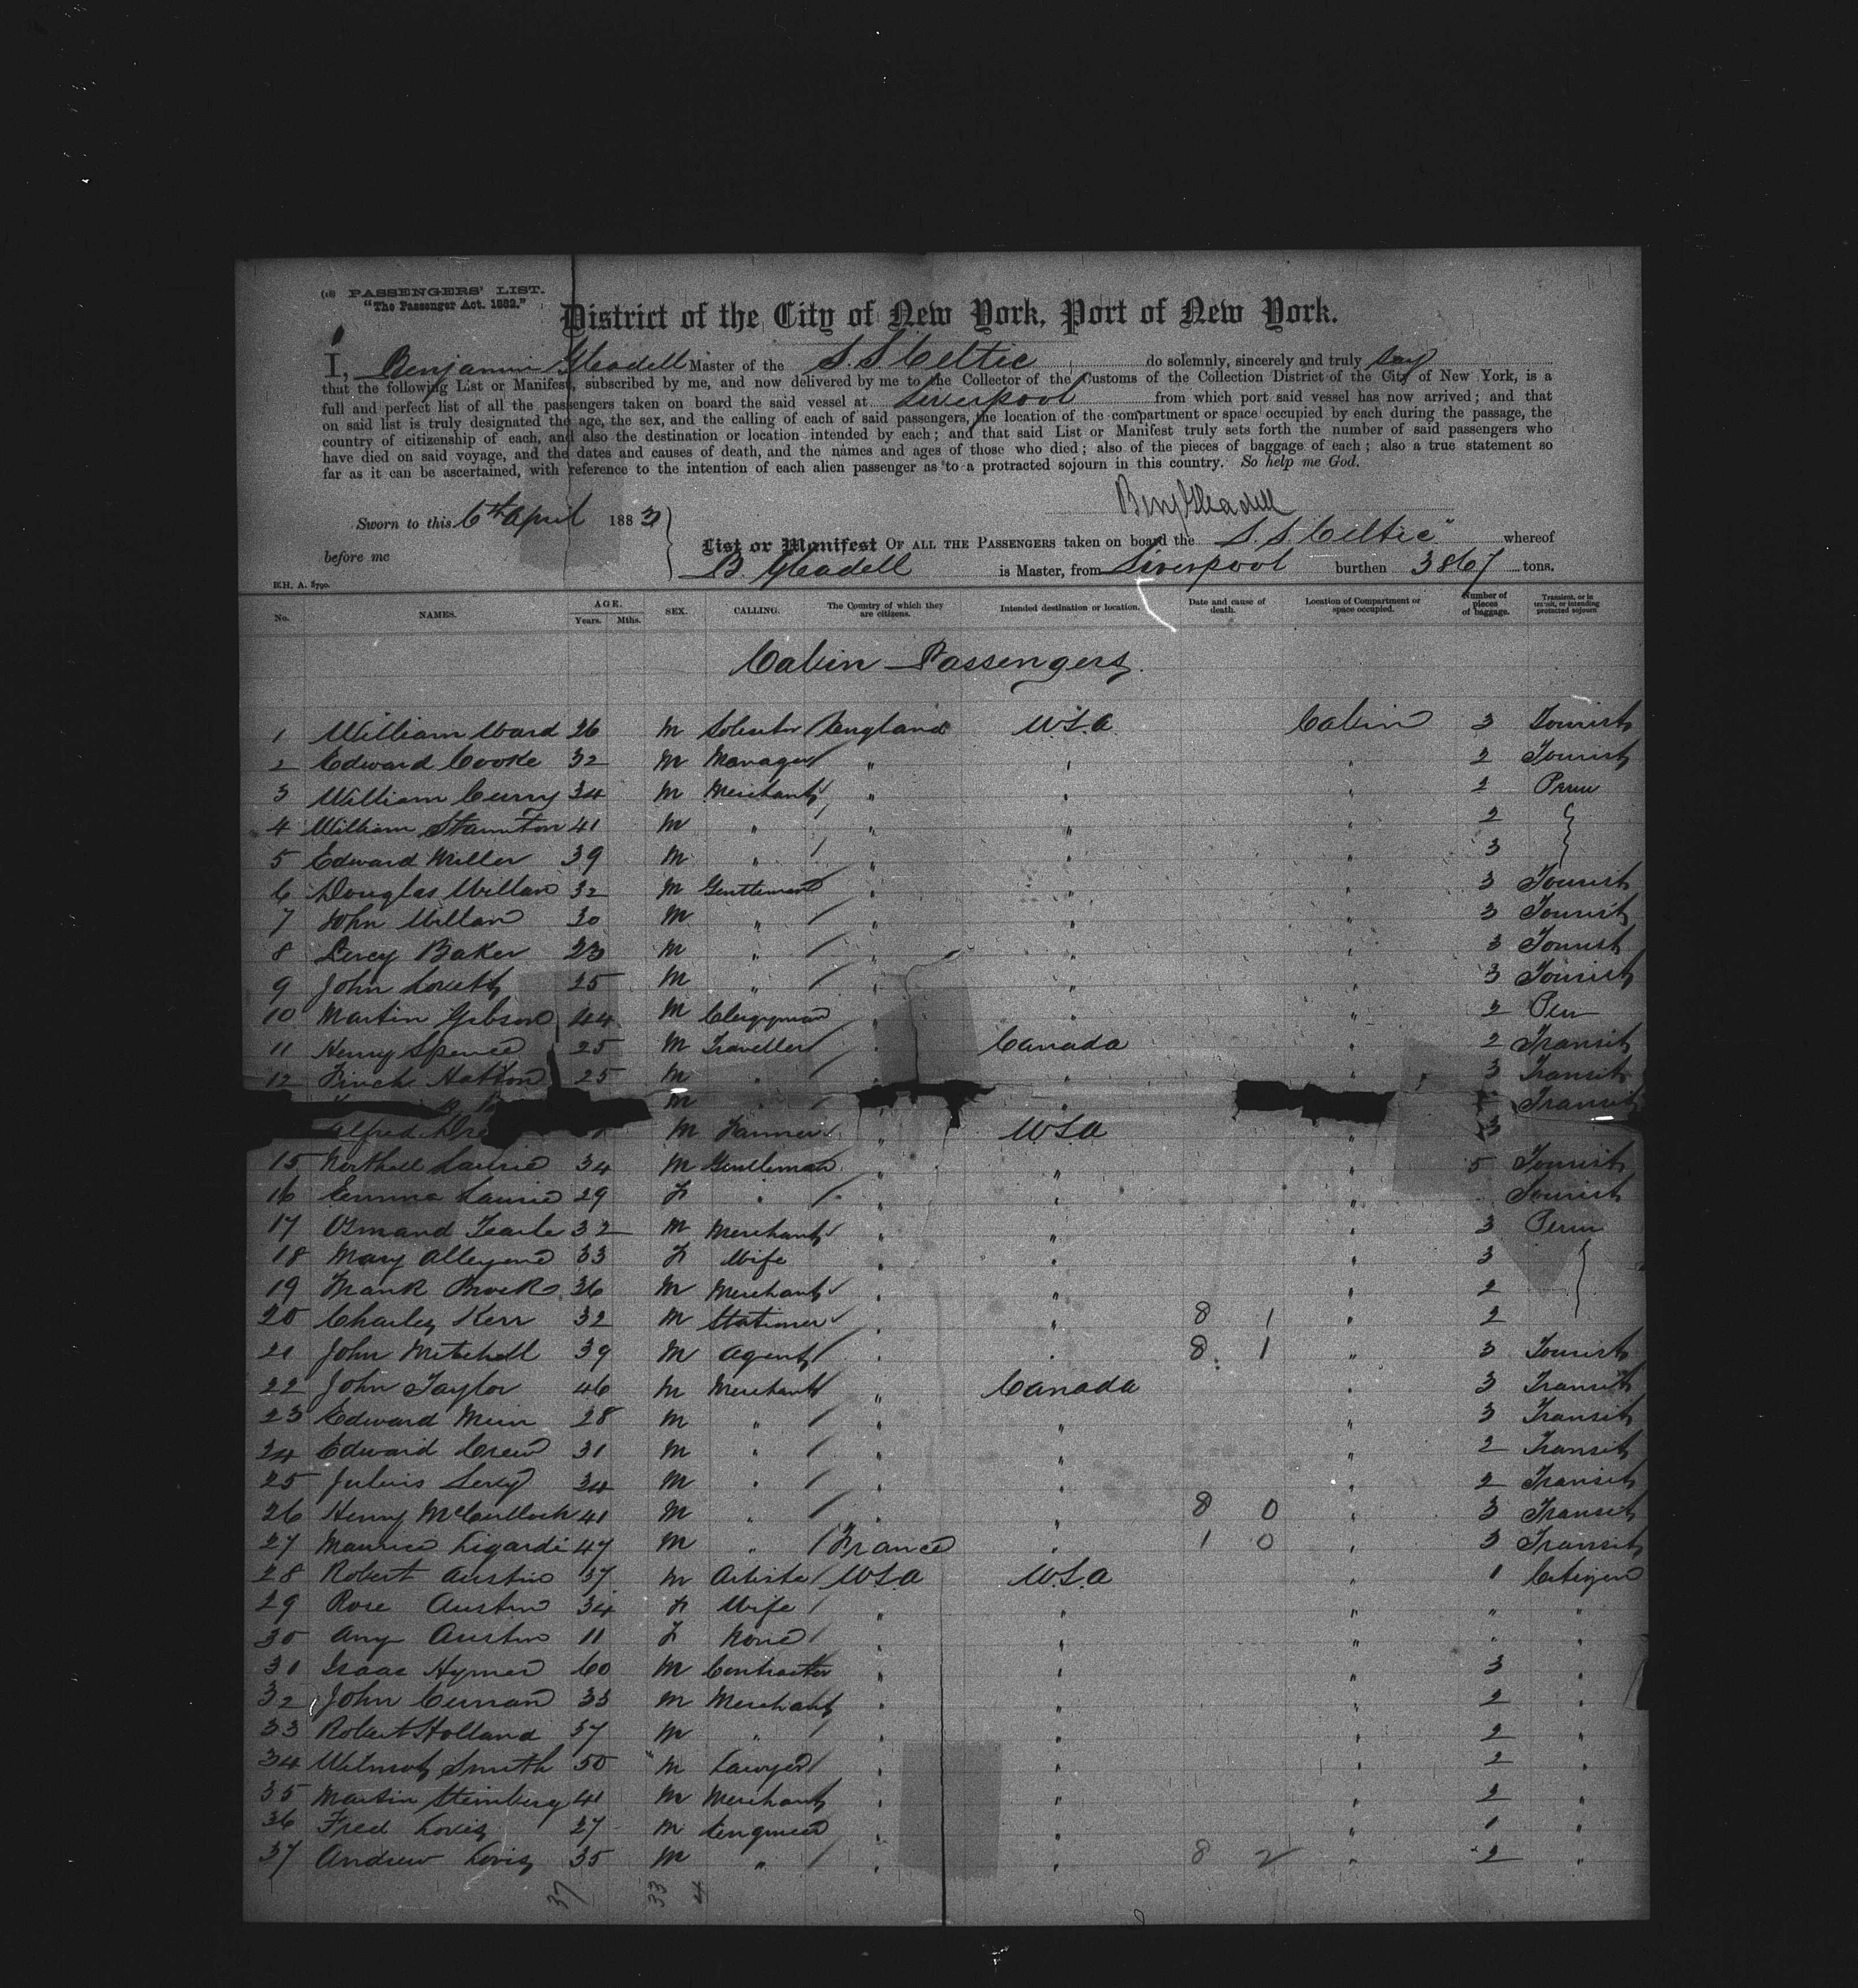 (18) PASSENGERS' LIST.
"The Passenger Act. 1882."
District of the City of New York, Port of New York.
I, Benjamin Gleadell Master of the S.S Celtic do solemnly, sincerely and truly say
that the following List or Manifest, subscribed by me, and now delivered by me to the Collector of the Customs of the Collection District of the City of New York, is a
full and perfect list of all the passengers taken on board the said vessel at Liverpool from which port said vessel has now arrived; and that
on said list is truly designated the age, the sex, and the calling of each of said passengers, the location of the compartment or space occupied by each during the passage, the
country of citizenship of each, and also the destination or location intended by each; and that said List or Manifest truly sets forth the number of said passengers who
have died on said voyage, and the dates and causes of death, and the names and ages of those who died; also of the pieces of baggage of each; also a true statement so
far as it can be ascertained, with reference to the intention of each alien passenger as to a protracted sojourn in this country. So help me God.
Benj Gleadell
Sworn to this 6th April 1883
before me
List or Manifest OF ALL THE PASSENGERS taken on board the S.S. Celtic" whereof
B Gleadell is Master, from Liverpool burthen 3867 tons.
No. NAMES. AGE. Years. Mths. SEX. CALLING. The Country of which they are citizens. Intended destination or location. Date and cause of death. Location of Compartment or space occupied. Number of pieces of baggage. Transient, or in transit, or intending protracted sojourn
Cabin Passengers
1 William Ward 26 M Solicitor England U.S.A Cabin 3 Tourist
2 Edward Cooke 32 M Manager " " " 2 Tourist
3 William Curry 34 M Merchant " " " 2
4 William Staunton 41 M " " " " 2
5 Edward Miller 39 M " " " " 3
6 Douglas Millan 32 M Gentleman " " " 3 Tourist
7 John Millan 30 M " " " " 3 Tourist
8 Percy Baker 23 M " " " " 3 Tourist
9 John 25 M " " " " 3 Tourist
10 Martin Gibson 44 M Clergyman " " " 2
11 Henry Spence 25 M Traveller " Canada " 2 Transit
12 Finch Hatton 25 M " " " 3 Transit
M " " Transit
Alfred M Farmer " U.S.A " 3
15 Laurie 34 M Gentleman " " " 5 Tourist
16 Emma Laurie 29 F " " " " Tourist
17 Osmand Tearle 32 M Merchant " " " 3
18 Mary Alleyne 33 F Wife " " " 3
19 Frank Brock 36 M Merchant " " " 2
20 Charles Kerr 32 M Stationer " " 8 1 " 2
21 John Mitchell 39 M Agent " " 8 1 " 3 Tourist
22 John Taylor 46 M Merchant " Canada " 3 Transit
23 Edward 28 M " " " " 3 Transit
24 Edward Crew 31 M " " " " 2 Transit
25 Julius 34 M " " " " 2 Transit
26 Henry McCulloch 41 M " " " 8 0 " 3 Transit
27 Maurice Ligardi 47 M " France " 1 0 " 3 Transit
28 Robert Austin 37 M Artiste U.S.A U.S.A " 1 Citizen
29 Rose Austin 34 F Wife " " " " "
30 Amy Austin 11 F None " " " " "
31 Isaac Hymer 60 M Contractor " " " 3 "
32 John Curran 33 M Merchant " " " 2 "
33 Robert Holland 37 M " " " " 2 "
34 Wilmot Smith 50 M Lawyer " " " 2 "
35 Martin Steinberg 41 M Merchant " " " 2 "
36 Fred 27 M Engineer " " " 1 "
37 Andrew 35 M " " " 8 2 " 2 "
37 33 4